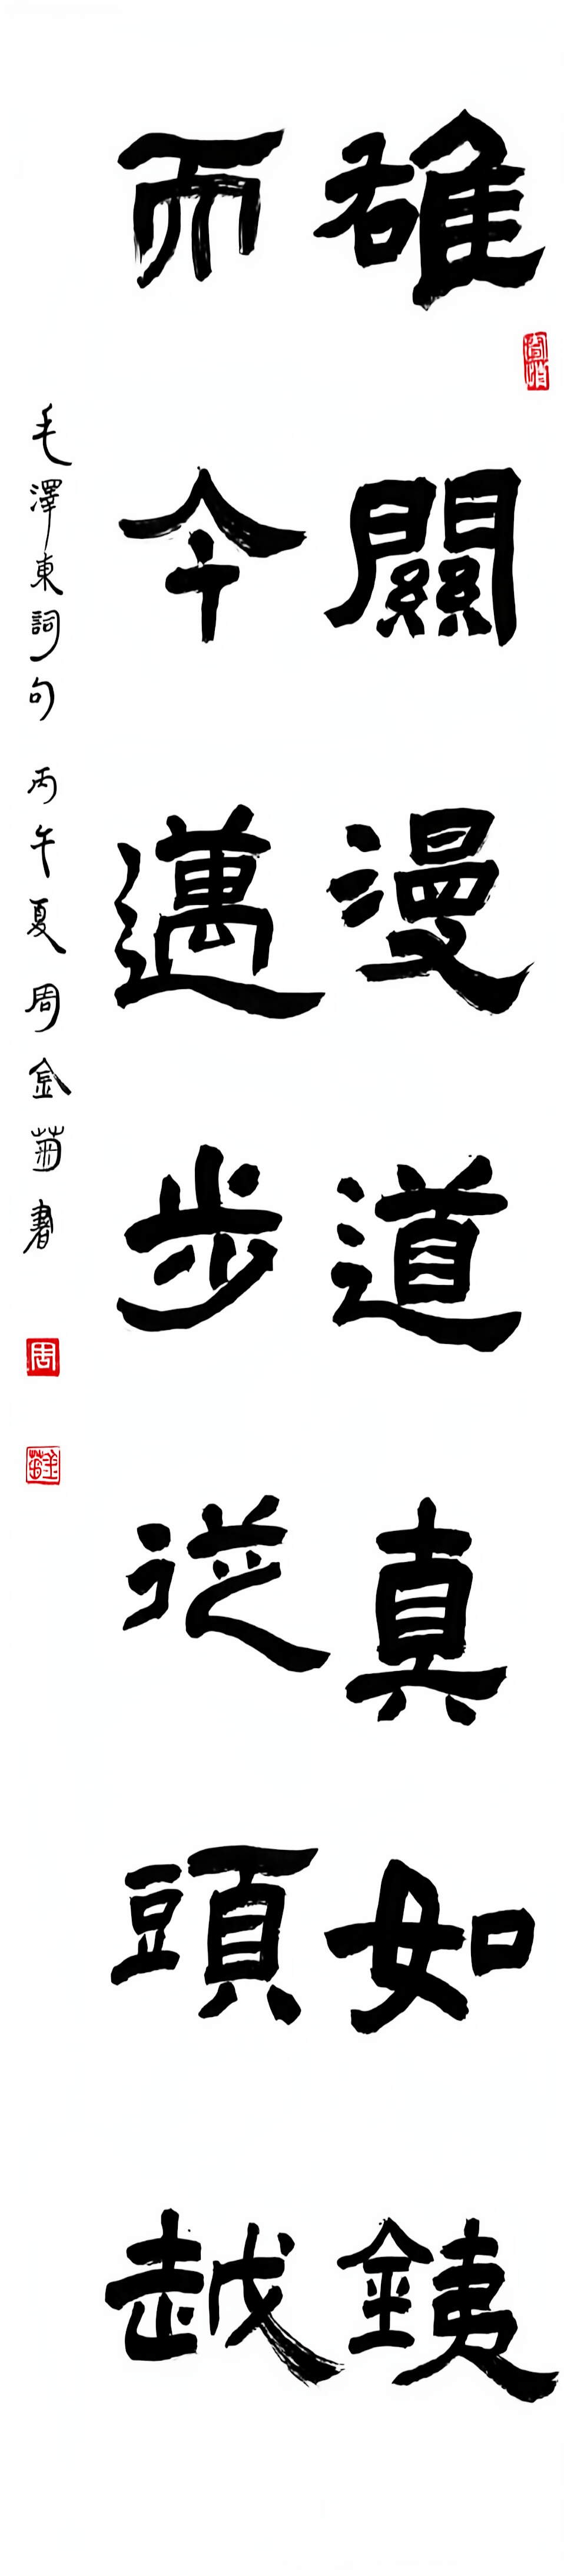 雄關漫道真如銕
而今邁步從頭越
毛澤東詞句 丙午夏 周金菊書
周
金菊